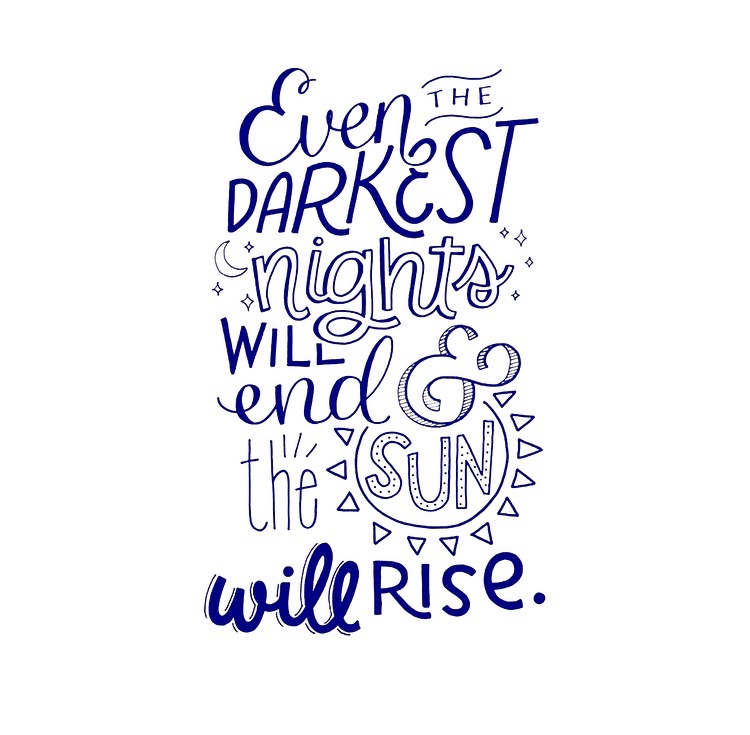 Even THE
DARKEST
nights
WILL
end &
the SUN
will RISe.